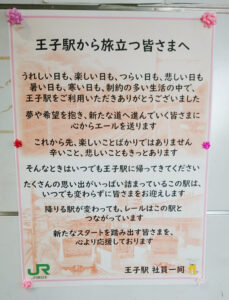 王子駅から旅立つ皆さまへ
うれしい日も、楽しい日も、つらい日も、悲しい日も
暑い日も、寒い日も、制約の多い生活の中で、
王子駅をご利用いただきありがとうございました
夢や希望を抱き、新たな道へ進んでいく皆さまに
心からエールを送ります
これから先、楽しいことばかりではありません
辛いこと、悲しいこともきっとあります
そんなときはいつでも王子駅に帰ってきてください
たくさんの思い出がいっぱい詰まっているこの駅は、
いつでも変わらずに皆さまをお迎えします
降りる駅が変わっても、レールはこの駅と
つながっています
新たなスタートを踏み出す皆さまを、
心より応援しております
JR
王子駅 社員一同